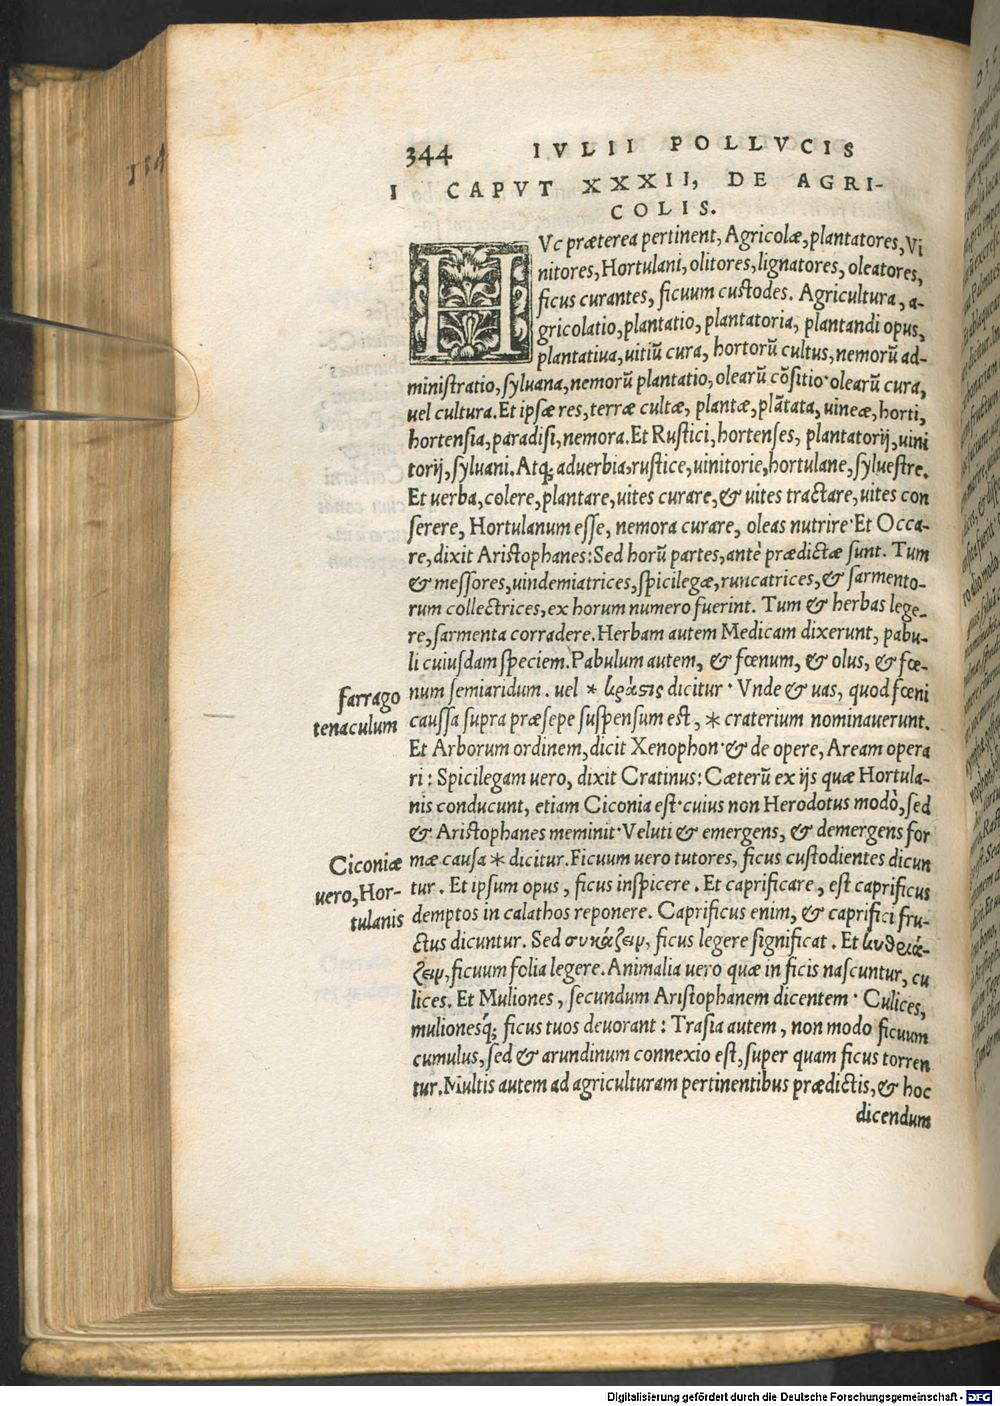 344 IVLII POLLVCIS
I CAPVT XXXII, DE AGRI-
COLIS.
HVc præterea pertinent, Agricolæ, plantatores, Vi
nitores, Hortulani, olitores, lignatores, oleatores,
ficus curantes, ficuum custodes. Agricultura, a-
gricolatio, plantatio, plantatoria, plantandi opus,
plantatiua, uitiū cura, hortorū cultus, nemorū ad-
ministratio, syluana, nemorū plantatio, olearū cōsitio· olearū cura,
uel cultura. Et ipsæ res, terræ cultæ, plantæ, plātata, uineæ, horti,
hortensia, paradisi, nemora. Et Rustici, hortenses, plantatorij, uini
torij, syluani. Atq; aduerbia, rustice, uinitorie, hortulane, syluestre.
Et uerba, colere, plantare, uites curare, & uites tractare, uites con
serere, Hortulanum esse, nemora curare, oleas nutrire· Et Occa-
re, dixit Aristophanes: Sed horū partes, antè prædictæ sunt. Tum
& messores, uindemiatrices, spicilegæ, runcatrices, & sarmento-
rum collectrices, ex horum numero fuerint. Tum & herbas lege-
re, sarmenta corradere. Herbam autem Medicam dixerunt, pabu-
li cuiusdam speciem. Pabulum autem, & fœnum, & olus, & fœ-
farrago num semiaridum. uel * κράσις dicitur · Vnde & uas, quod fœni
tenaculum caussa supra præsepe suspensum est, * craterium nominauerunt.
Et Arborum ordinem, dicit Xenophon· & de opere, Aream opera
ri: Spicilegam uero, dixit Cratinus: Cæterū ex ijs quæ Hortula-
nis conducunt, etiam Ciconia est· cuius non Herodotus modò, sed
& Aristophanes meminit· Veluti & emergens, & demergens for
Ciconiæ mæ causa * dicitur. Ficuum uero tutores, ficus custodientes dicun
uero, Hor- tur. Et ipsum opus, ficus inspicere. Et caprificare, est caprificus
tulanis demptos in calathos reponere. Caprificus enim, & caprifici fru-
ctus dicuntur. Sed συκάζειν, ficus legere significat. Et κυθριά-
ζειν, ficuum folia legere. Animalia uero quæ in ficis nascuntur, cu
lices. Et Muliones, secundum Aristophanem dicentem · Culices,
mulionesq́; ficus tuos deuorant: Trasia autem, non modo ficuum
cumulus, sed & arundinum connexio est, super quam ficus torren
tur. Multis autem ad agriculturam pertinentibus prædictis, & hoc
dicendum
Digitalisierung gefördert durch die Deutsche Forschungsgemeinschaft - DFG